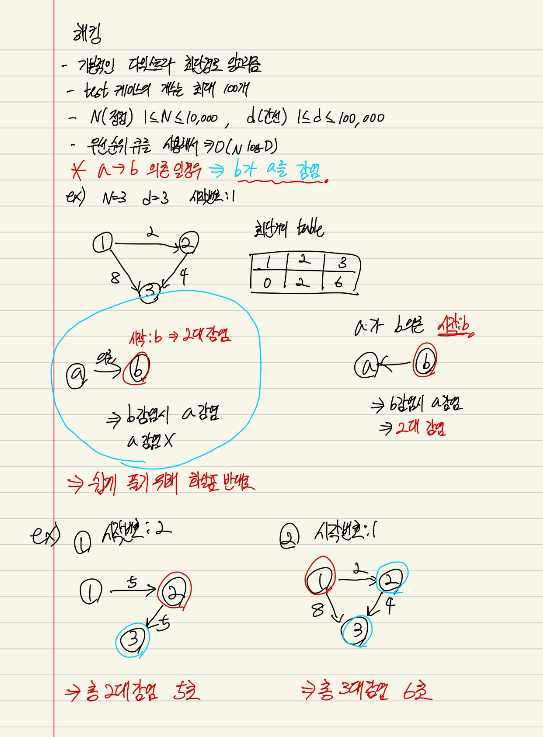 해킹
- 기본적인 다익스트라 최단경로 알고리즘
- test 케이스의 개수는 최대 100개
- N(정점) 1≤N≤10,000 , d(간선) 1≤d≤100,000
- 우선순위 큐를 사용해서 ⇒ O(N log D)
* a→b 의존일경우 ⇒ b가 a를 감염.
ex) N=3 d=3 시작번호:1
최단거리 table
1 2 3
0 2 6
1 2 2
8 4
3
시작:b ⇒ 2대감염
a 의존 b
⇒ b감염시 a감염
a감염X
a가 b의존 시작:b
a b
⇒ b감염시 a감염
⇒ 2대 감염
⇒ 쉽게 풀기 위해 화살표 반대로
ex) ① 시작번호:2
1 5 2
5
3
⇒ 총 2대감염 5초
② 시작번호:1
1 2 2
8 4
3
⇒ 총 3대감염 6초